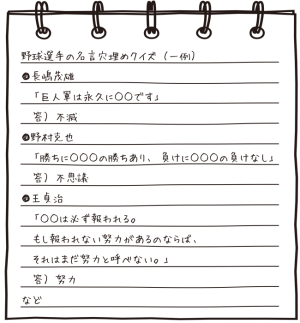 野球選手の名言穴埋めクイズ（一例）
●長嶋茂雄
「巨人軍は永久に〇〇です」
答）不滅
●野村克也
「勝ちに〇〇〇の勝ちあり、負けに〇〇〇の負けなし」
答）不思議
●王貞治
「〇〇は必ず報われる。
もし報われない努力があるのならば、
それはまだ努力と呼べない。」
答）努力
など